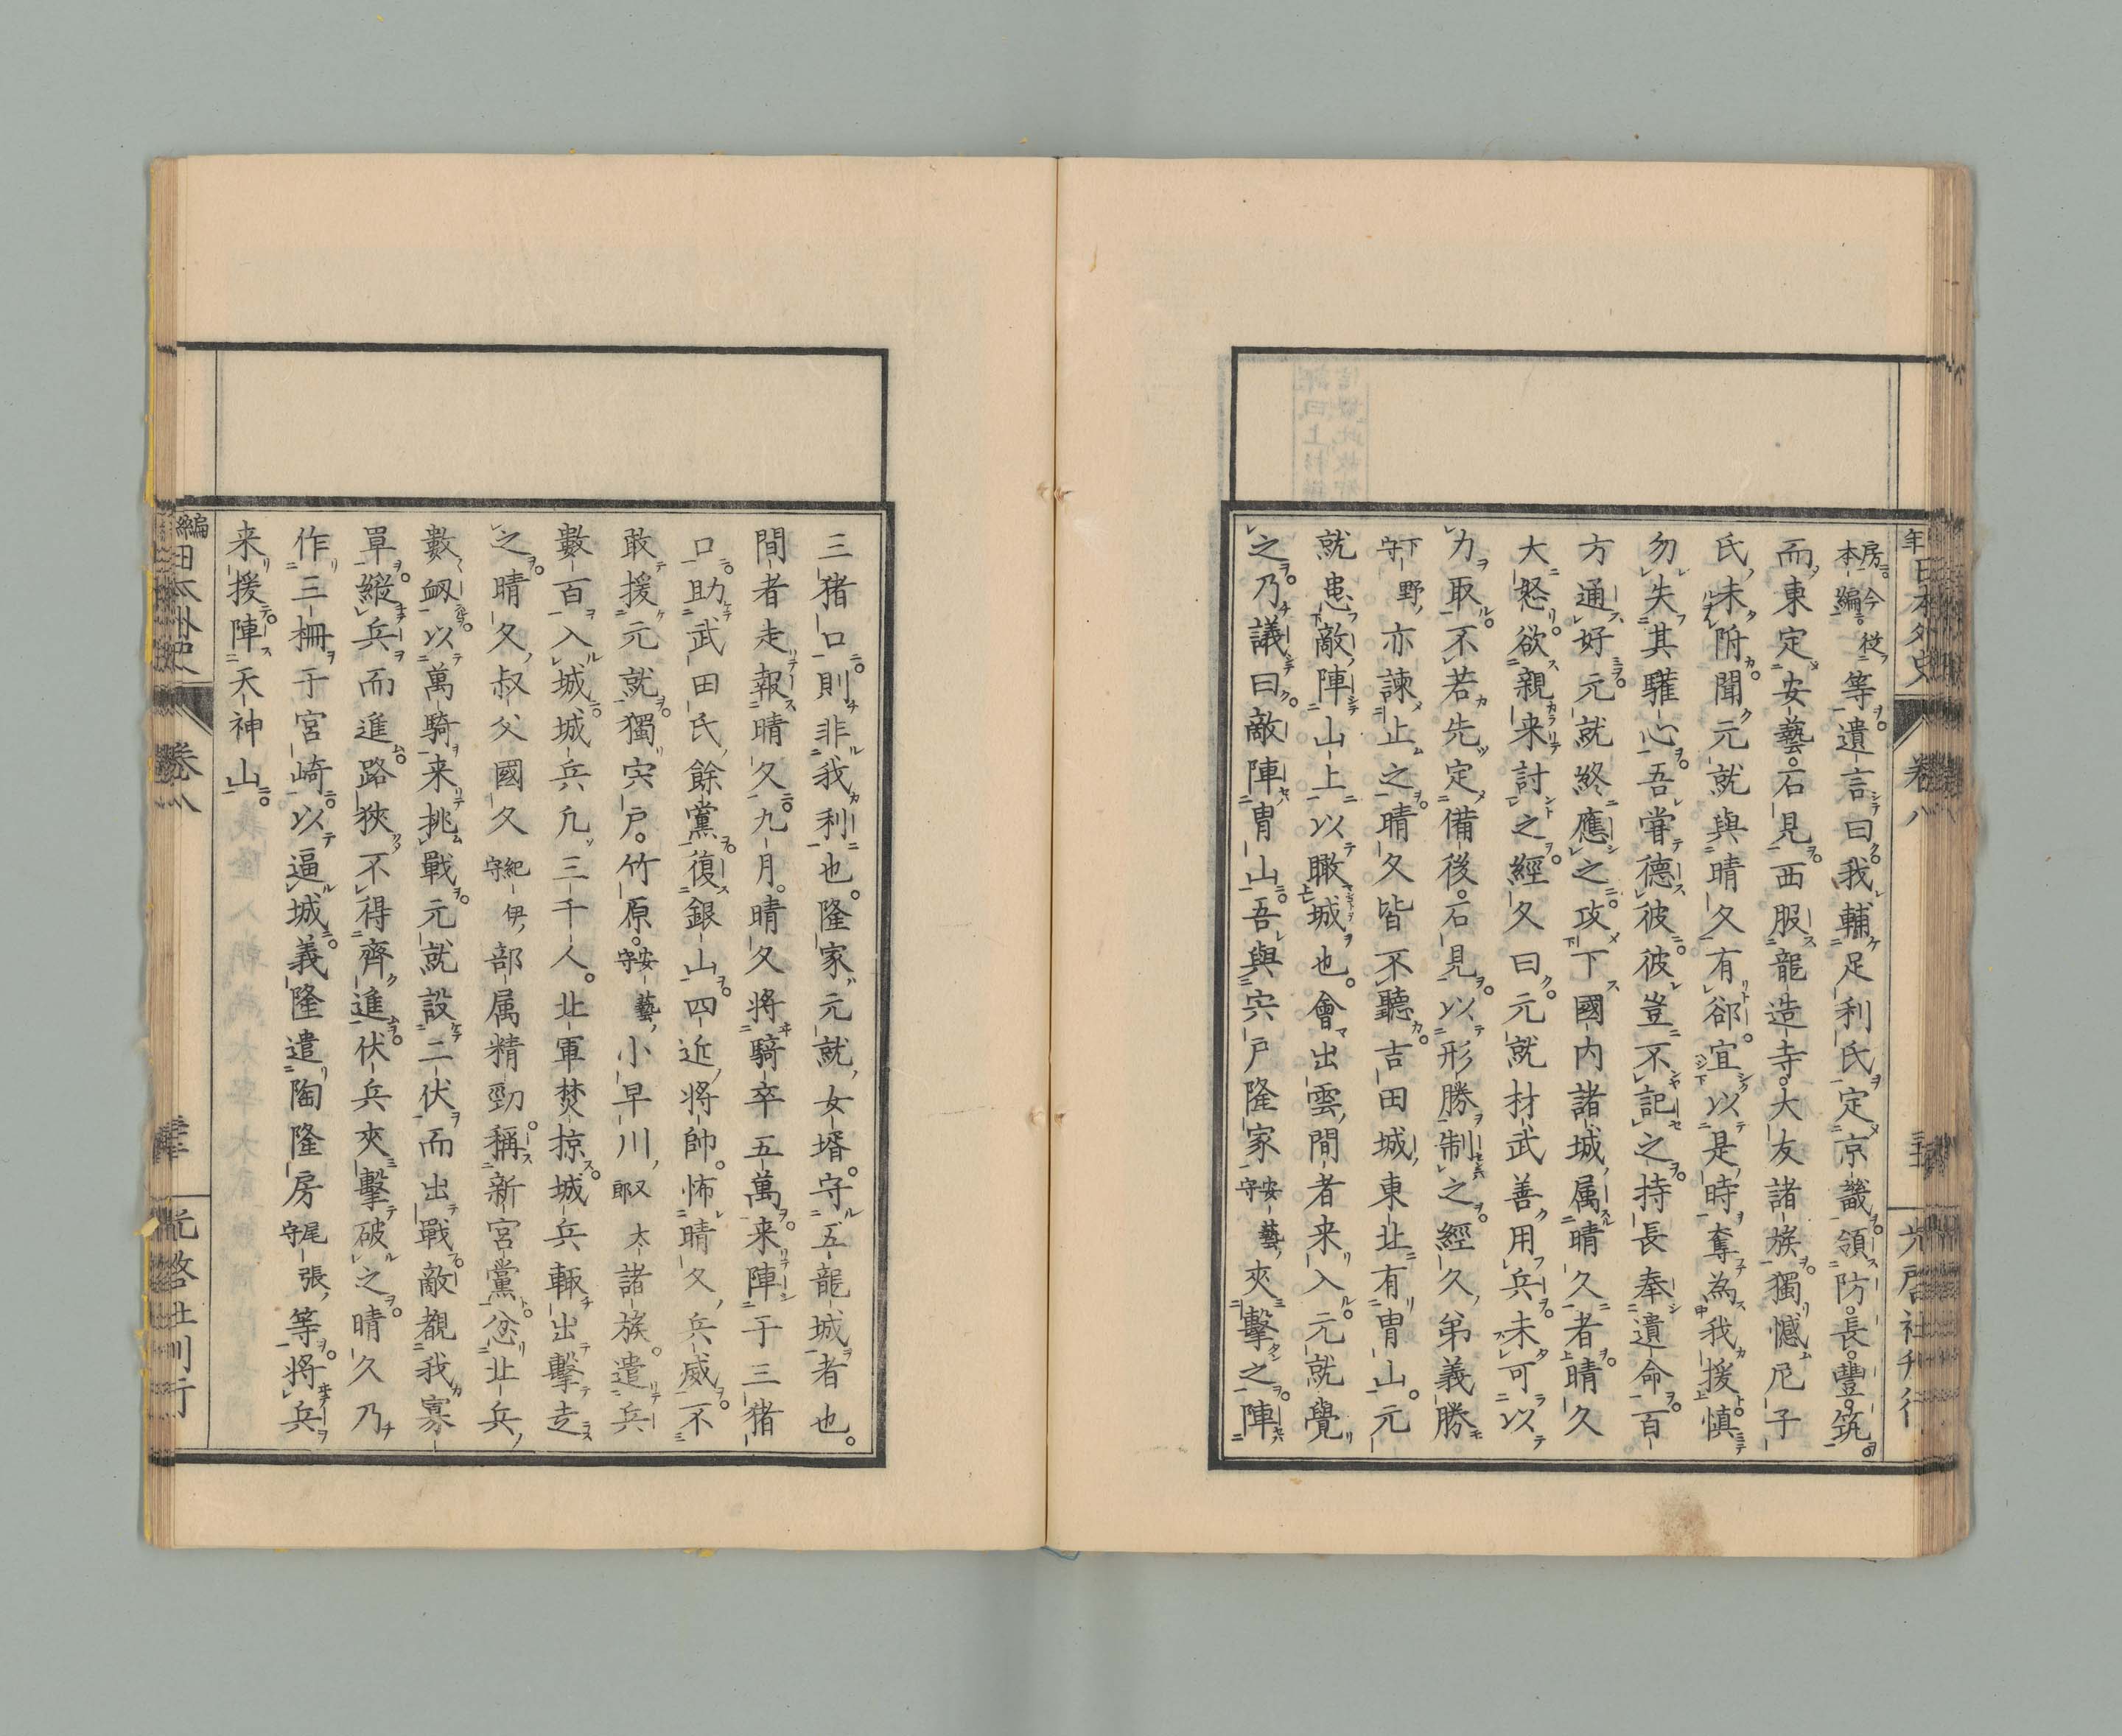 年日本外史 卷八 光啓社刊行
房本編今從等遺言曰我輔足利氏定京畿領防長豐筑
而東定安藝石見西服龍造寺大友諸族獨憾尼子
氏未附聞元就與晴久有郤宜以是時奪為我援慎
勿失其驩心吾嘗德彼彼豈不記之持長奉遺命百
方通好元就終應之攻下國内諸城属晴久者晴久
大怒欲親来討之經久曰元就材武善用兵未可以
力取不若先定備後石見以形勝制之經久弟義勝
下野守亦諫止之晴久皆不聽吉田城東北有冑山元
就患敵陣山上以瞰城也會出雲間者来入元就覺
之乃議曰敵陣冑山吾與宍戸隆家安藝守夾擊之陣
三猪口則非我利也隆家元就女壻守五龍城者也
間者走報晴久九月晴久將騎卒五萬来陣于三猪
口助武田氏餘黨復銀山四近將帥怖晴久兵威不
敢援元就獨宍戸竹原安藝守小早川太諸族遣兵
數百入城城兵凡三千人北軍焚掠城兵輙出擊走
之晴久叔父國久紀伊守部属精勁稱新宮黨忿北兵
數衂以萬騎来挑戰元就設二伏而出戰敵觀我寡
單縱兵而進路狹不得齊進伏兵夾擊破之晴久乃
作三柵于宮崎以逼城義隆遣陶隆房尾張守等將兵
来援陣天神山
編日本外史 卷八 光啓社刊行